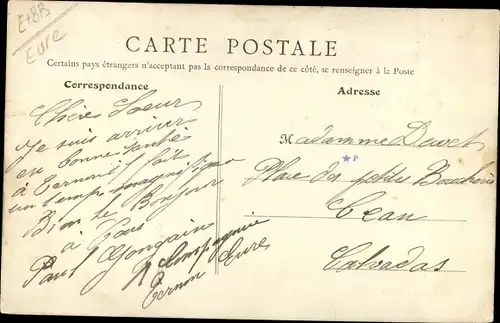 E78B
Eure
CARTE POSTALE
Certains pays étrangers n'acceptant pas la correspondance de ce côté, se renseigner à la Poste
Correspondance
Adresse
Chère Soeur
Je suis arriver
en bonne santé
à Vernon il fait
un temps magnifique
Bien le Bonjour
à Tous
Paul
Compagnie
Vernon Eure
Madamme Duvet
Place des petites Boucheries
Cean
Calvadas